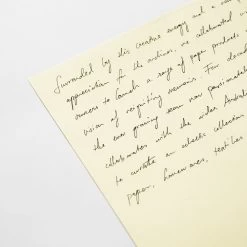 Surrounded by this creative energy and a
appreciation for the artisan, we collaborated
owners to launch a range of paper products
vision of reigniting memoirs. Few decades
the ever growing
collaborates with the wider Australian
to curate an eclectic collection
paper, homewares, textiles